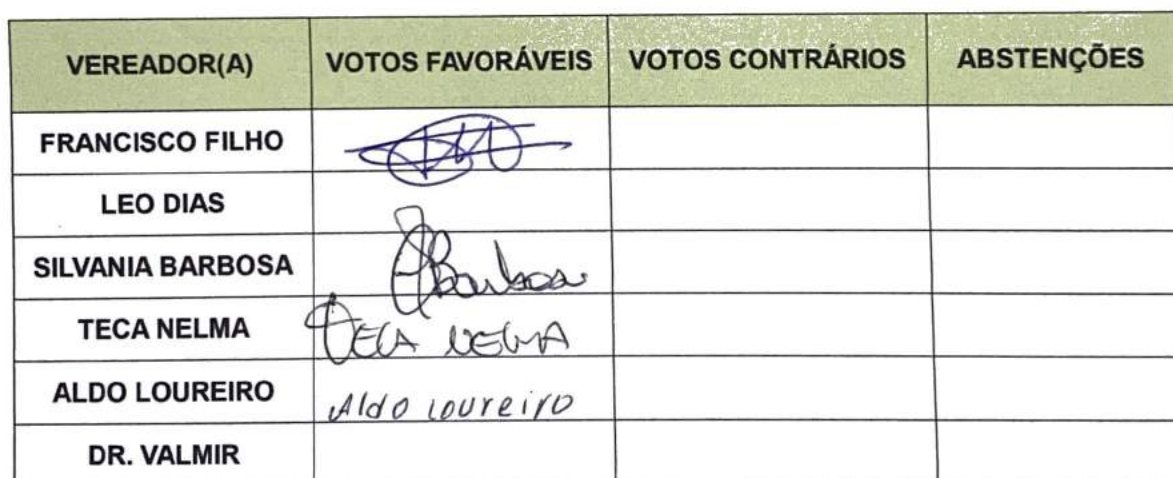 VEREADOR(A) VOTOS FAVORÁVEIS VOTOS CONTRÁRIOS ABSTENÇÕES
FRANCISCO FILHO
LEO DIAS
SILVANIA BARBOSA Barbosa
TECA NELMA TECA NELMA
ALDO LOUREIRO Aldo loureiro
DR. VALMIR